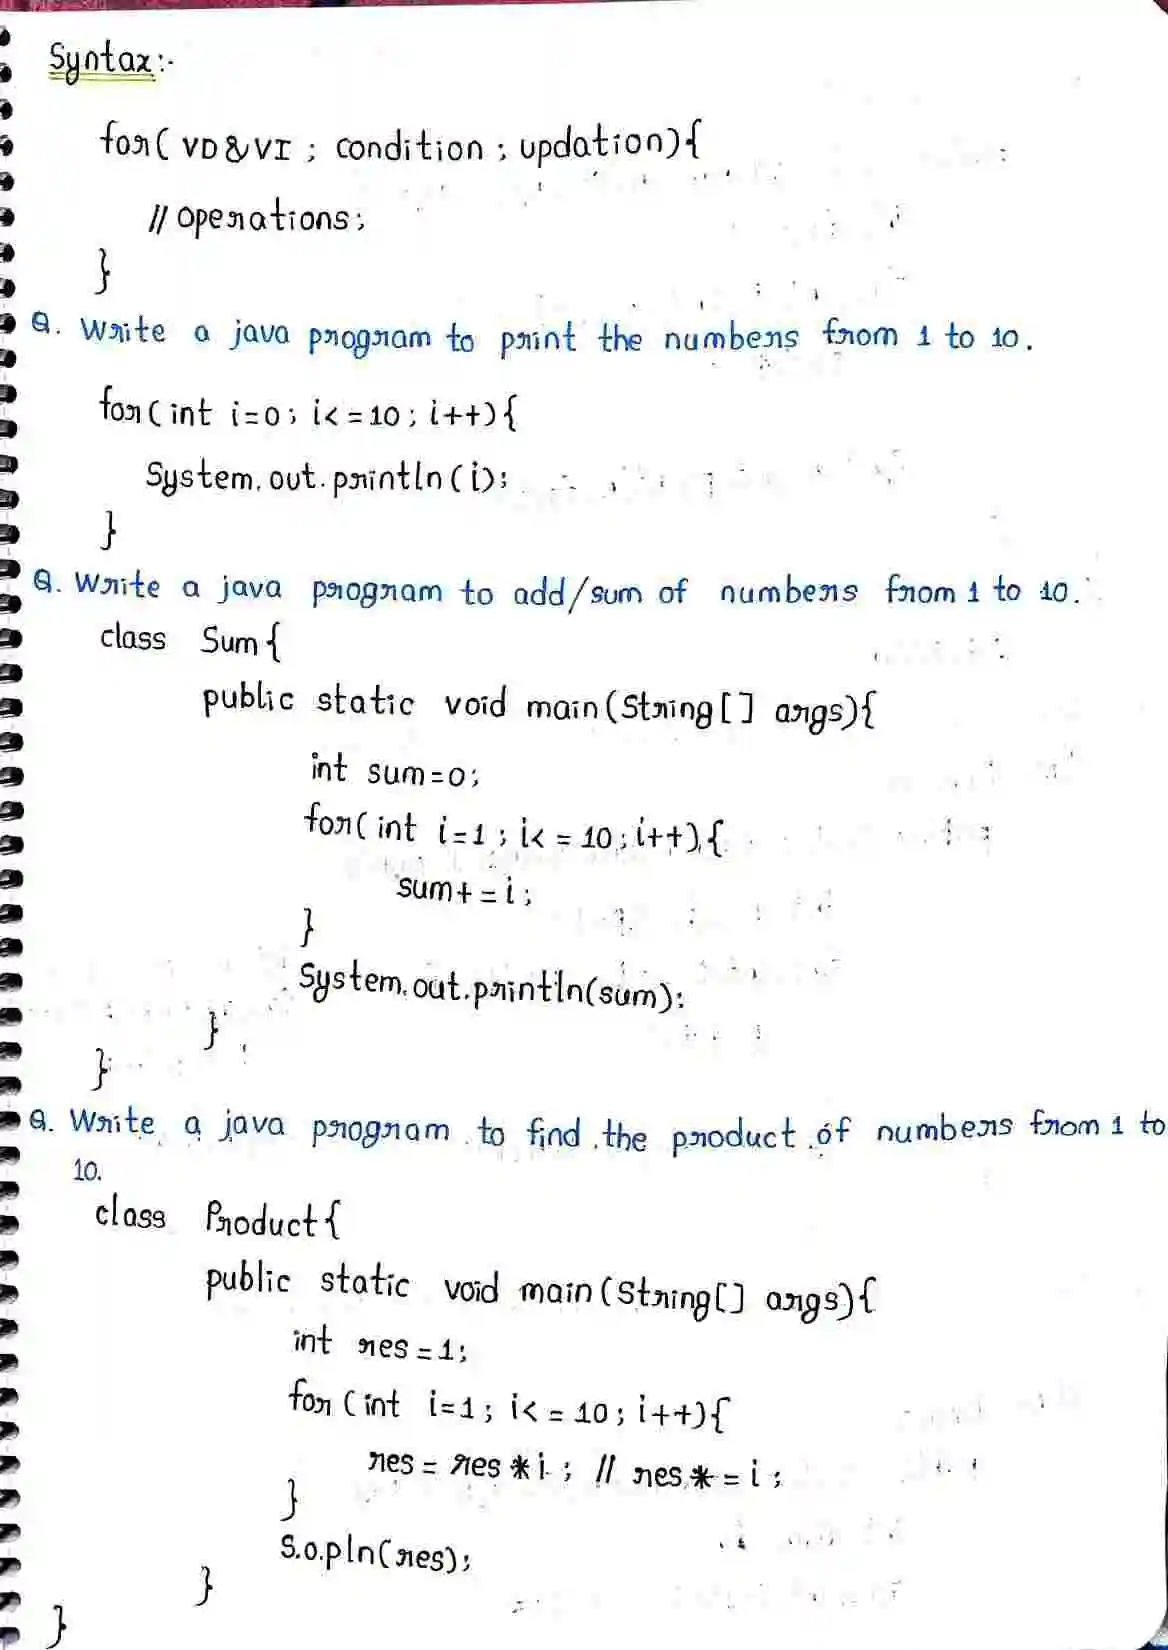 Syntax:-
for( VD&VI ; condition ; updation){
// operations;
}
Q. Write a java program to print the numbers from 1 to 10.
for(int i=0; i<=10; i++){
System.out.println(i);
}
Q. Write a java program to add/sum of numbers from 1 to 10.
class Sum{
public static void main(String[] args){
int sum=0;
for(int i=1; i<=10; i++){
sum+=i;
}
System.out.println(sum);
}
}
Q. Write a java program to find the product of numbers from 1 to
10.
class Product{
public static void main(String[] args){
int res=1;
for (int i=1; i<=10; i++){
res = res*i; // res*=i;
}
S.o.pln(res);
}
}